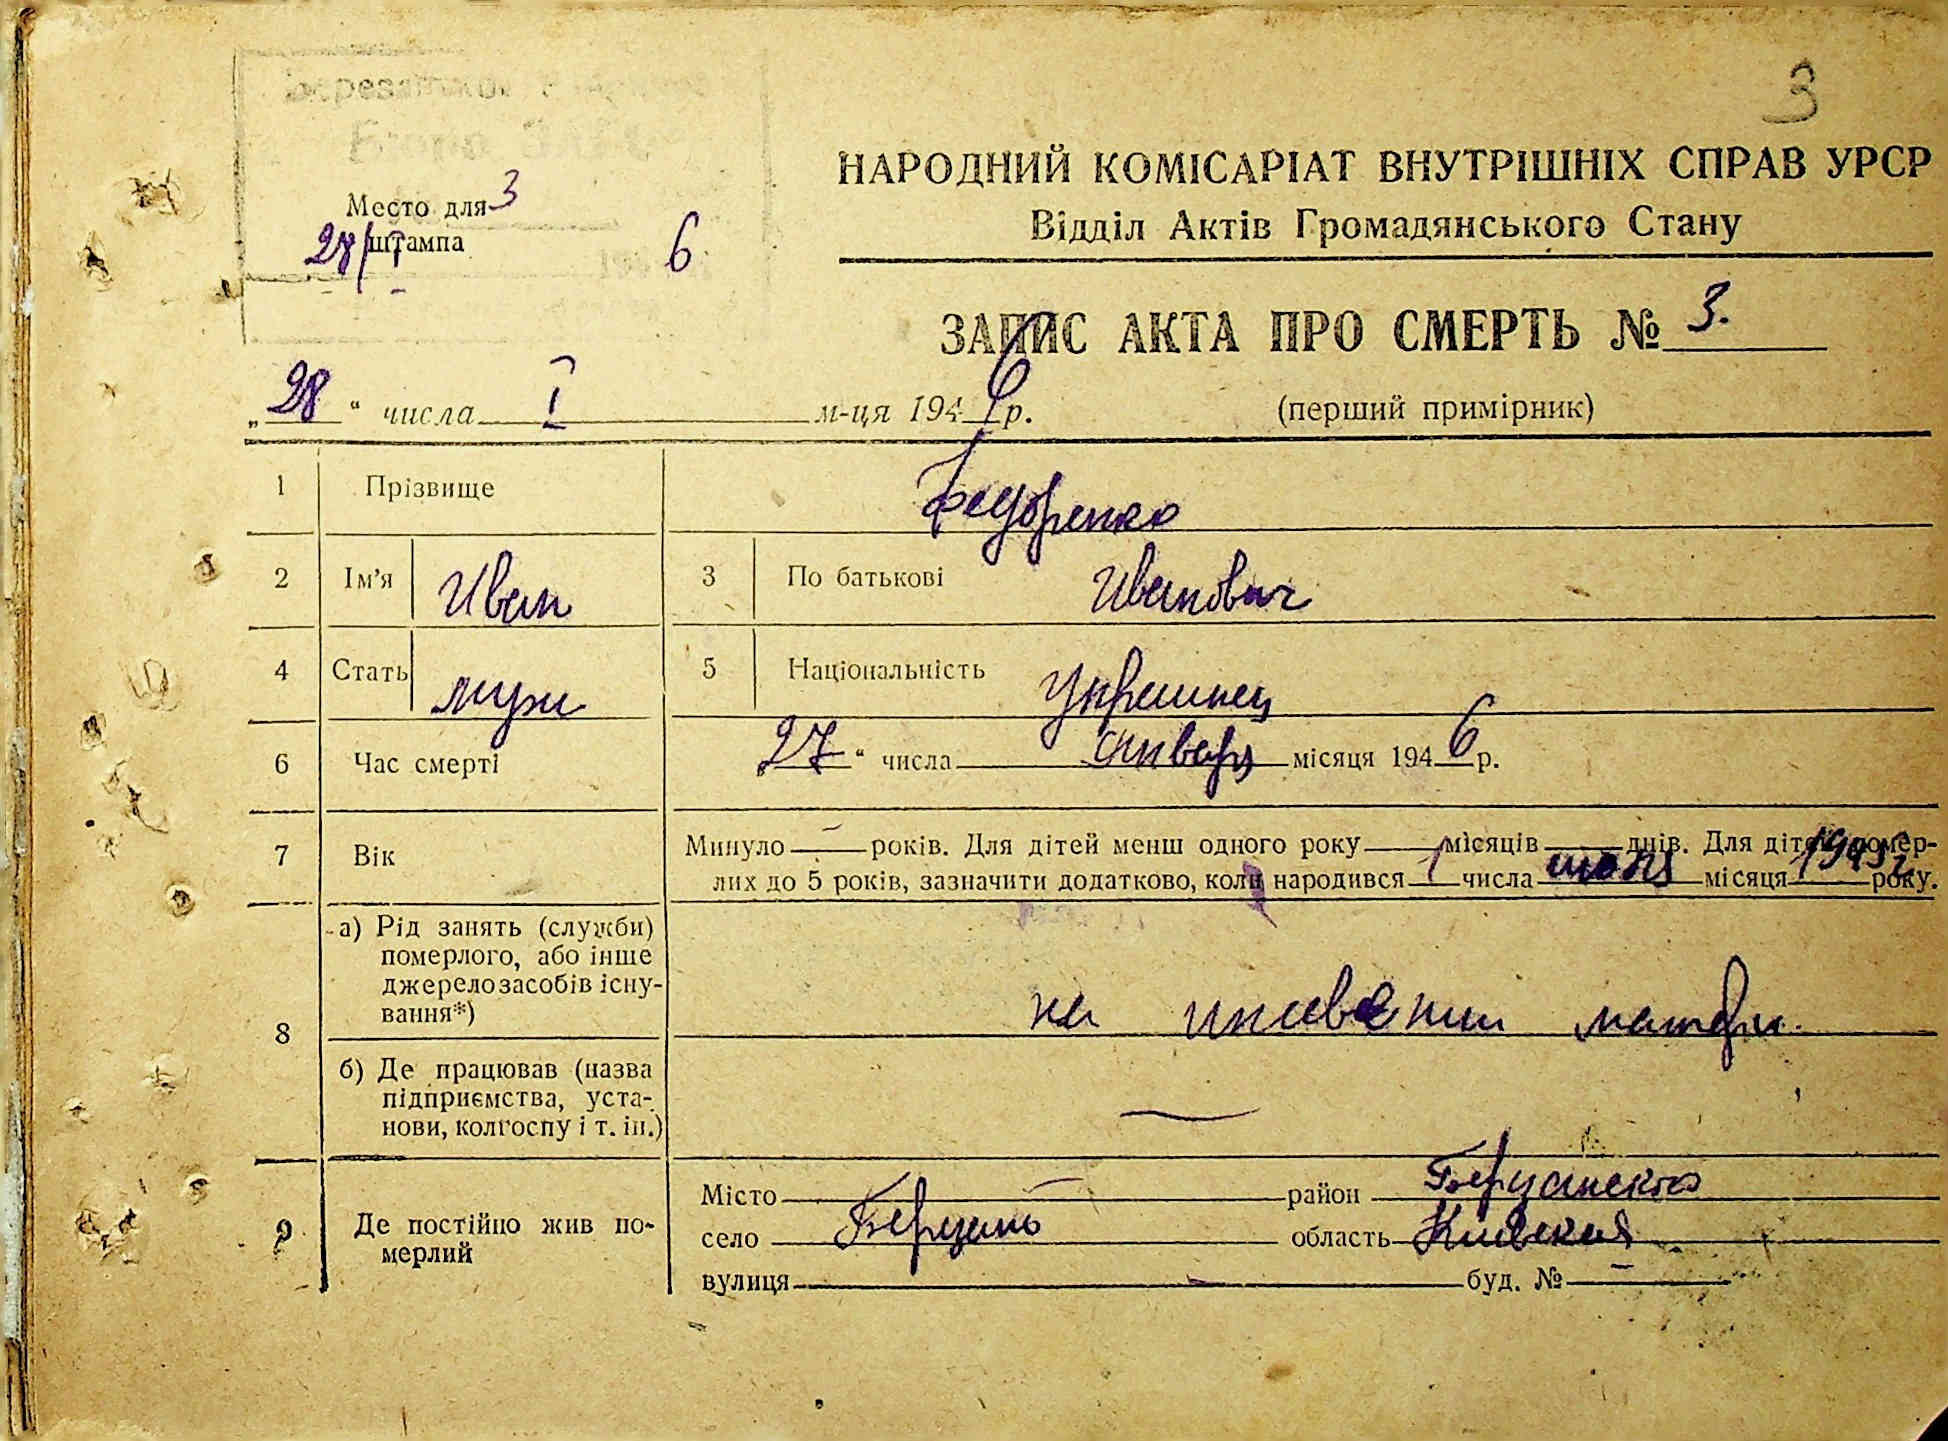 3
Бюро ЗАГС
НАРОДНИЙ КОМІСАРІАТ ВНУТРІШНІХ СПРАВ УРСР
Место для 3
Відділ Актів Громадянського Стану
28/I штампа 6
ЗАПИС АКТА ПРО СМЕРТЬ № 3.
„28“ числа I м-ця 1946 р. (перший примірник)
1 Прізвище Федоренко
2 Ім’я Иван 3 По батькові Иванович
4 Стать муж 5 Національність украинец
6 Час смерті „27“ числа января місяця 1946 р.
7 Вік Минуло — років. Для дітей менш одного року місяців днів. Для дітей, помер-
лих до 5 років, зазначити додатково, коли народився 1 числа июля місяця 1945 г року.
8 а) Рід занять (служби)
померлого, або інше
джерело засобів існу-
вання*) на иждивении матери.
б) Де працював (назва
підприємства, уста-
нови, колгоспу і т. ін.) —
9 Де постійно жив по-
мерлий
Місто — район
село Березань область Киевская
вулиця — буд. № —